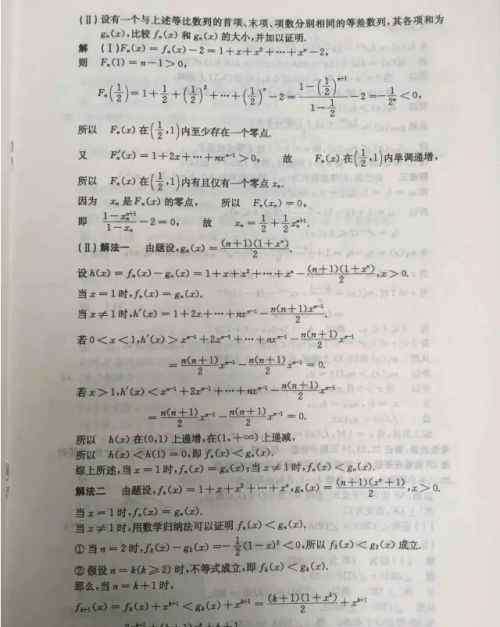 (Ⅱ) 设有一个与上述等比数列的首项、末项、项数分别相同的等差数列,其各项和为
gₙ(x),比较 fₙ(x) 和 gₙ(x) 的大小,并加以证明.
解 (Ⅰ)Fₙ(x) = fₙ(x) − 2 = 1 + x + x² + ⋯ + xⁿ − 2,
则 Fₙ(1) = n − 1 > 0,
Fₙ(1/2) = 1 + 1/2 + (1/2)² + ⋯ + (1/2)ⁿ − 2 = (1 − (1/2)ⁿ⁺¹)/(1 − 1/2) − 2 = −1/2ⁿ < 0,
所以 Fₙ(x) 在(1/2,1)内至少存在一个零点.
又 Fₙ′(x) = 1 + 2x + ⋯ + nxⁿ⁻¹ > 0, 故 Fₙ(x) 在(1/2,1)内单调递增,
所以 Fₙ(x) 在(1/2,1)内有且仅有一个零点 xₙ.
因为 xₙ 是 Fₙ(x) 的零点, 所以 Fₙ(xₙ) = 0,
即 (1 − xₙⁿ⁺¹)/(1 − xₙ) − 2 = 0, 故 xₙ = 1/2 + 1/2 xₙⁿ⁺¹.
(Ⅱ) 解法一 由题设,gₙ(x) = (n+1)(1+xⁿ)/2,
设 h(x) = fₙ(x) − gₙ(x) = 1 + x + x² + ⋯ + xⁿ − (n+1)(1+xⁿ)/2, x > 0.
当 x = 1 时,fₙ(x) = gₙ(x).
当 x ≠ 1 时,h′(x) = 1 + 2x + ⋯ + nxⁿ⁻¹ − n(n+1)xⁿ⁻¹/2.
若 0 < x < 1,h′(x) > xⁿ⁻¹ + 2xⁿ⁻¹ + ⋯ + nxⁿ⁻¹ − n(n+1)/2 xⁿ⁻¹
= n(n+1)/2 xⁿ⁻¹ − n(n+1)/2 xⁿ⁻¹ = 0.
若 x > 1,h′(x) < xⁿ⁻¹ + 2xⁿ⁻¹ + ⋯ + nxⁿ⁻¹ − n(n+1)/2 xⁿ⁻¹
= n(n+1)/2 xⁿ⁻¹ − n(n+1)/2 xⁿ⁻¹ = 0.
所以 h(x) 在(0,1) 上递增,在(1,+∞) 上递减,
所以 h(x) < h(1) = 0,即 fₙ(x) < gₙ(x).
综上所述,当 x = 1 时,fₙ(x) = gₙ(x);当 x ≠ 1 时,fₙ(x) < gₙ(x).
解法二 由题设,fₙ(x) = 1 + x + x² + ⋯ + xⁿ,gₙ(x) = (n+1)(xⁿ+1)/2, x > 0.
当 x = 1 时,fₙ(x) = gₙ(x).
当 x ≠ 1 时,用数学归纳法可以证明 fₙ(x) < gₙ(x),
① 当 n = 2 时,f₂(x) − g₂(x) = −1/2(1 − x)² < 0,所以 f₂(x) < g₂(x) 成立.
② 假设 n = k(k ≥ 2) 时,不等式成立,即 fₖ(x) < gₖ(x).
那么,当 n = k + 1 时,
fₖ₊₁(x) = fₖ(x) + xᵏ⁺¹ < gₖ(x) + xᵏ⁺¹ = (k+1)(1+xᵏ)/2 + xᵏ⁺¹